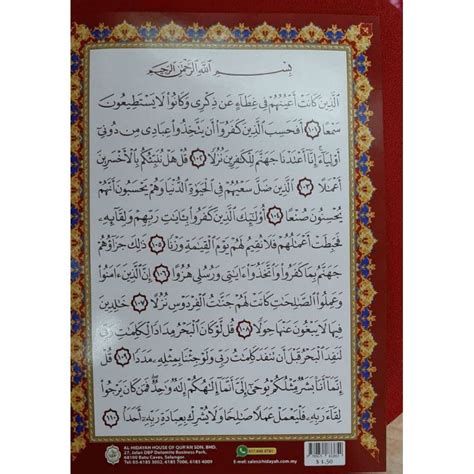 بِسْمِ ٱللَّهِ ٱلرَّحْمَٰنِ ٱلرَّحِيمِ
ٱلَّذِينَ كَانَتْ أَعْيُنُهُمْ فِى غِطَآءٍ عَن ذِكْرِى وَكَانُوا۟ لَا يَسْتَطِيعُونَ
سَمْعًا ١٠١ أَفَحَسِبَ ٱلَّذِينَ كَفَرُوٓا۟ أَن يَتَّخِذُوا۟ عِبَادِى مِن دُونِىٓ
أَوْلِيَآءَ إِنَّآ أَعْتَدْنَا جَهَنَّمَ لِلْكَٰفِرِينَ نُزُلًا ١٠٢ قُلْ هَلْ نُنَبِّئُكُم بِٱلْأَخْسَرِينَ
أَعْمَٰلًا ١٠٣ ٱلَّذِينَ ضَلَّ سَعْيُهُمْ فِى ٱلْحَيَوٰةِ ٱلدُّنْيَا وَهُمْ يَحْسَبُونَ أَنَّهُمْ
يُحْسِنُونَ صُنْعًا ١٠٤ أُو۟لَٰٓئِكَ ٱلَّذِينَ كَفَرُوا۟ بِـَٔايَٰتِ رَبِّهِمْ وَلِقَآئِهِۦ
فَحَبِطَتْ أَعْمَٰلُهُمْ فَلَا نُقِيمُ لَهُمْ يَوْمَ ٱلْقِيَٰمَةِ وَزْنًا ١٠٥ ذَٰلِكَ جَزَآؤُهُمْ
جَهَنَّمُ بِمَا كَفَرُوا۟ وَٱتَّخَذُوٓا۟ ءَايَٰتِى وَرُسُلِى هُزُوًا ١٠٦ إِنَّ ٱلَّذِينَ ءَامَنُوا۟
وَعَمِلُوا۟ ٱلصَّٰلِحَٰتِ كَانَتْ لَهُمْ جَنَّٰتُ ٱلْفِرْدَوْسِ نُزُلًا ١٠٧ خَٰلِدِينَ
فِيهَا لَا يَبْغُونَ عَنْهَا حِوَلًا ١٠٨ قُل لَّوْ كَانَ ٱلْبَحْرُ مِدَادًا لِّكَلِمَٰتِ رَبِّى
لَنَفِدَ ٱلْبَحْرُ قَبْلَ أَن تَنفَدَ كَلِمَٰتُ رَبِّى وَلَوْ جِئْنَا بِمِثْلِهِۦ مَدَدًا ١٠٩ قُلْ
إِنَّمَآ أَنَا۠ بَشَرٌ مِّثْلُكُمْ يُوحَىٰٓ إِلَىَّ أَنَّمَآ إِلَٰهُكُمْ إِلَٰهٌ وَٰحِدٌ فَمَن كَانَ يَرْجُوا۟
لِقَآءَ رَبِّهِۦ فَلْيَعْمَلْ عَمَلًا صَٰلِحًا وَلَا يُشْرِكْ بِعِبَادَةِ رَبِّهِۦٓ أَحَدًۢا ١١٠
AL-HIDAYAH HOUSE OF QUR'AN SDN. BHD.
27, Jalan DBP Dolomite Business Park,
68100 Batu Caves, Selangor
Tel: 03-6185 3002, 6185 7006, 6185 4009
E-mail: sales@hidayah.com.my